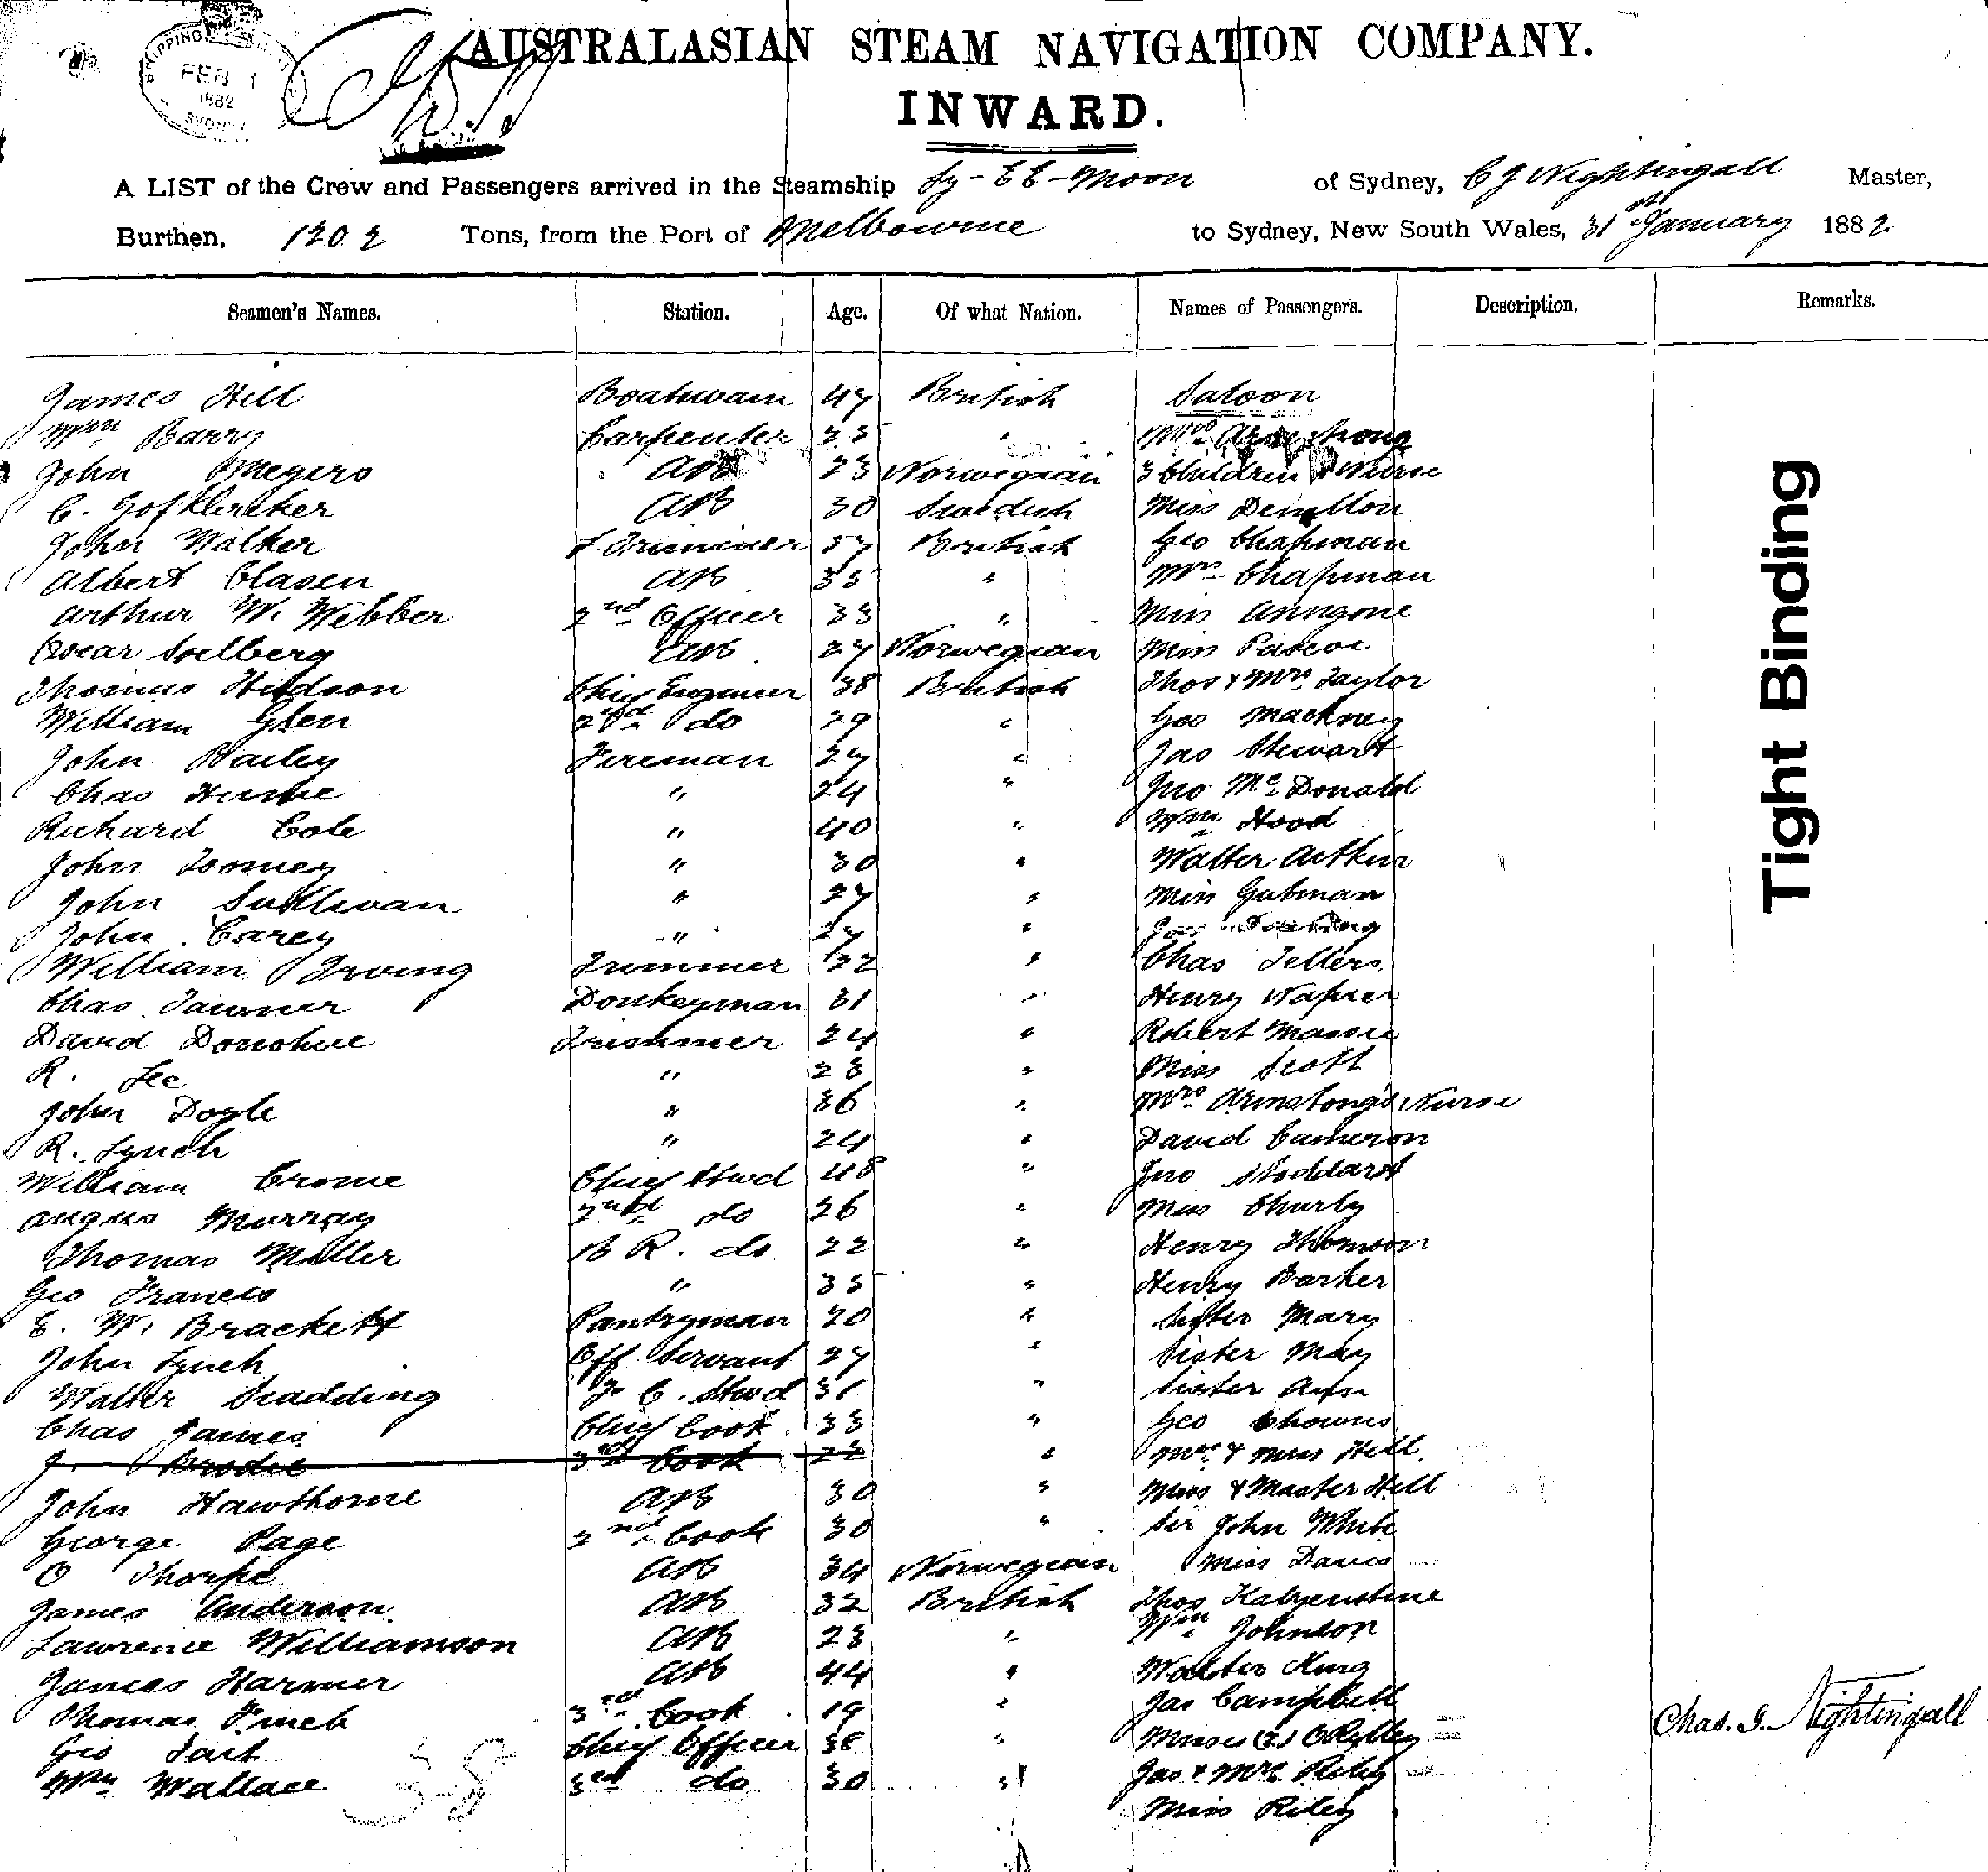 SHIPPING
FEB 1
1882
SYDNEY
AUSTRALASIAN STEAM NAVIGATION COMPANY.
INWARD.
A LIST of the Crew and Passengers arrived in the Steamship Ly-EE-Moon of Sydney, C J Nightingall Master,
Burthen, 1202 Tons, from the Port of Melbourne to Sydney, New South Wales, 31st January 1882
Seamen's Names. Station. Age. Of what Nation. Names of Passengers. Description. Remarks.
James Hill Boatswain 47 British Saloon
Wm Barry Carpenter 25 " Mrs Armstrong
John Meyers AB 23 Norwegian 3 Children & Nurse
C. AB 30 Swedish Miss
John Walker Trimmer 37 British Geo Chapman
Albert Clasen AB 35 " Mrs Chapman
Arthur W. Webber 2nd Officer 33 " Miss
Oscar Solberg AB 27 Norwegian Miss Pascoe
Thomas Hudson Chief Engineer 38 British Thos & Mrs Taylor
William Glen 2nd do 29 " Geo Mackney
John Bailey Fireman 27 " Jas Stewart
Chas Hume " 24 " Jno McDonald
Richard Cole " 40 " Wm Hood
John Toomey " 30 " Walter Arthur
John Sullivan " 27 " Miss Gutman
John Carey " 27 "
William Irving Trimmer 32 " Chas Tellers
Chas Donkeyman 31 " Henry Napier
David Donohue Trimmer 24 " Robert Massie
R. Lee " 23 " Miss Scott
John Doyle " 36 " Mrs Armstong's Nurse
R. Lynch " 24 " David Cameron
William Crome Chief Stwd 48 " Jno Stoddart
Angus Murray 2nd do 26 " Miss
Thomas Miller B R. do 22 " Henry Thomson
Geo Francis " 35 " Henry Barker
E. W. Brackett Pantryman 20 " Sister Mary
John Lynch Off. Servant 27 " Sister May
Walter Scadding F. C. Stwd 31 " Sister Ann
Chas James Chief Cook 33 " Geo Chowns
J. Brodie 3rd Cook 22 " Mrs & Miss Hill
John Hawthorne AB 30 " Miss & Master Hill
George Page 2nd Cook 30 " Sir John White
O Thorpe AB 34 Norwegian Miss Davies
James Anderson AB 32 British Thos
Lawrence Williamson AB 23 " Wm Johnson
James Harmer AB 44 " Walter King
Thomas Finch 3rd Cook 19 " Jas Campbell
Geo Tait Chief Officer 38 " Misses (2) O'Rylley
Wm Wallace 3rd do 30 " Jas & Mrs Riley
Miss Riley
38
Chas. J. Nightingall
Tight Binding